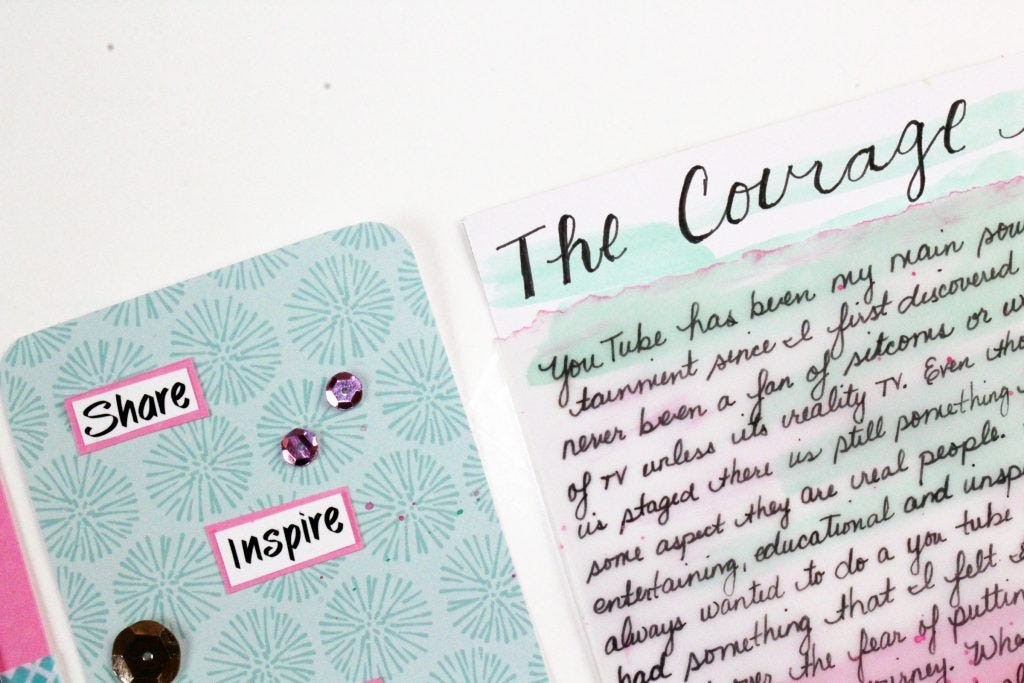 Share
Inspire
The Courage
YouTube has been my main
tainment since I first discovered
never been a fan of sitcoms or
of TV unless its reality TV. Even
is staged there is still something
some aspect they are real people.
entertaining, educational and
always wanted to do a you tube
had something that I felt
the fear of
When